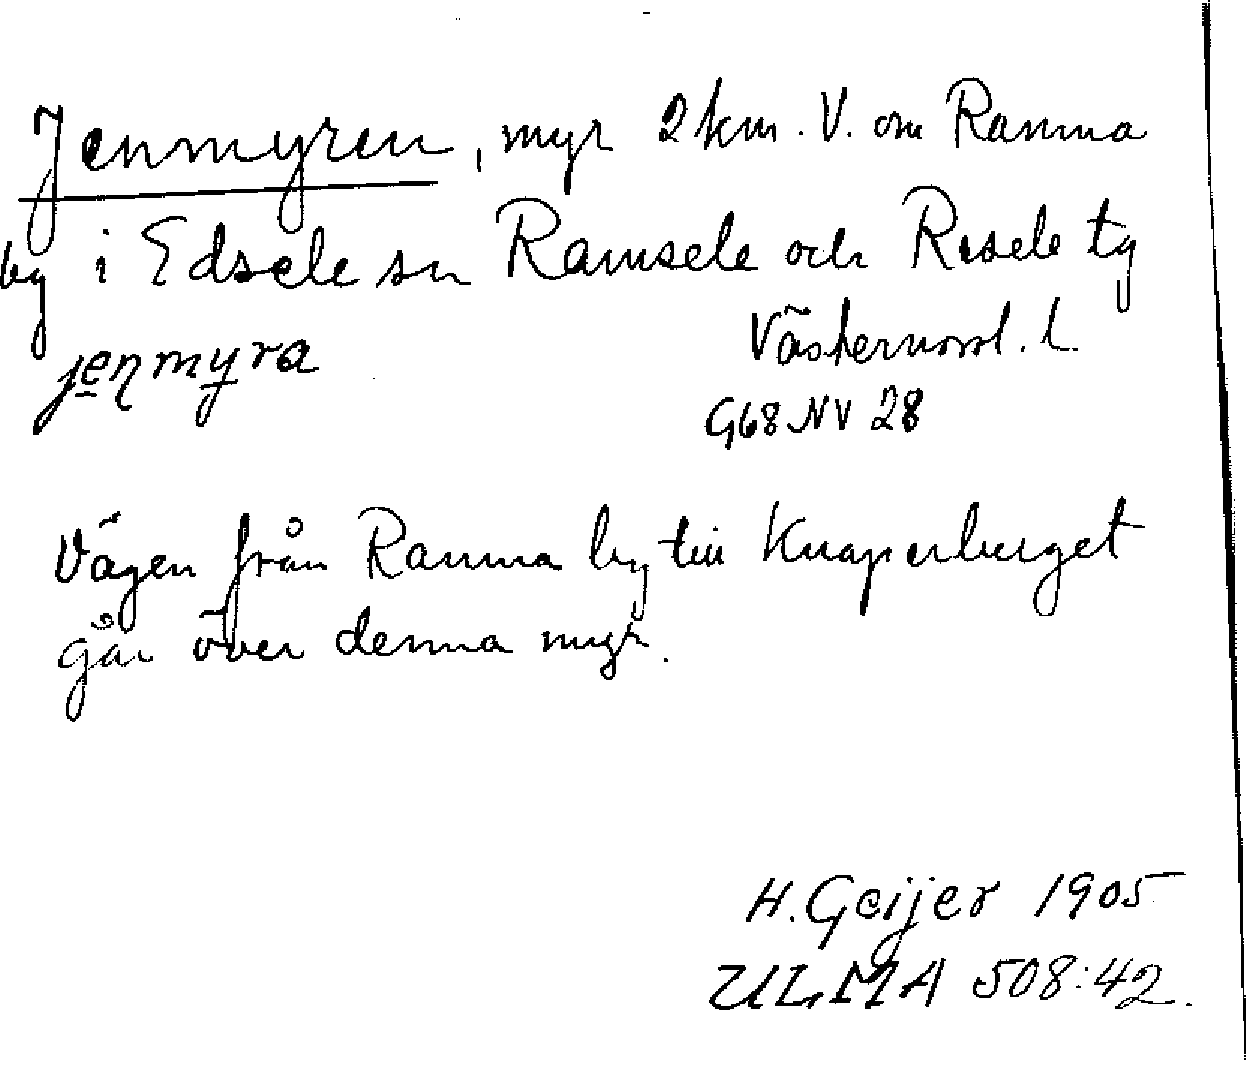 Jenmyren, myr 2 km. V. om Ramna
by i Edsele sn Ramsele och Resele tg
jenmyra Västernorrl. l.
G68 NV 28
Vägen från Ramna by till Knaperberget
går över denna myr.
H. Geijer 1905
ULMA 508:42.